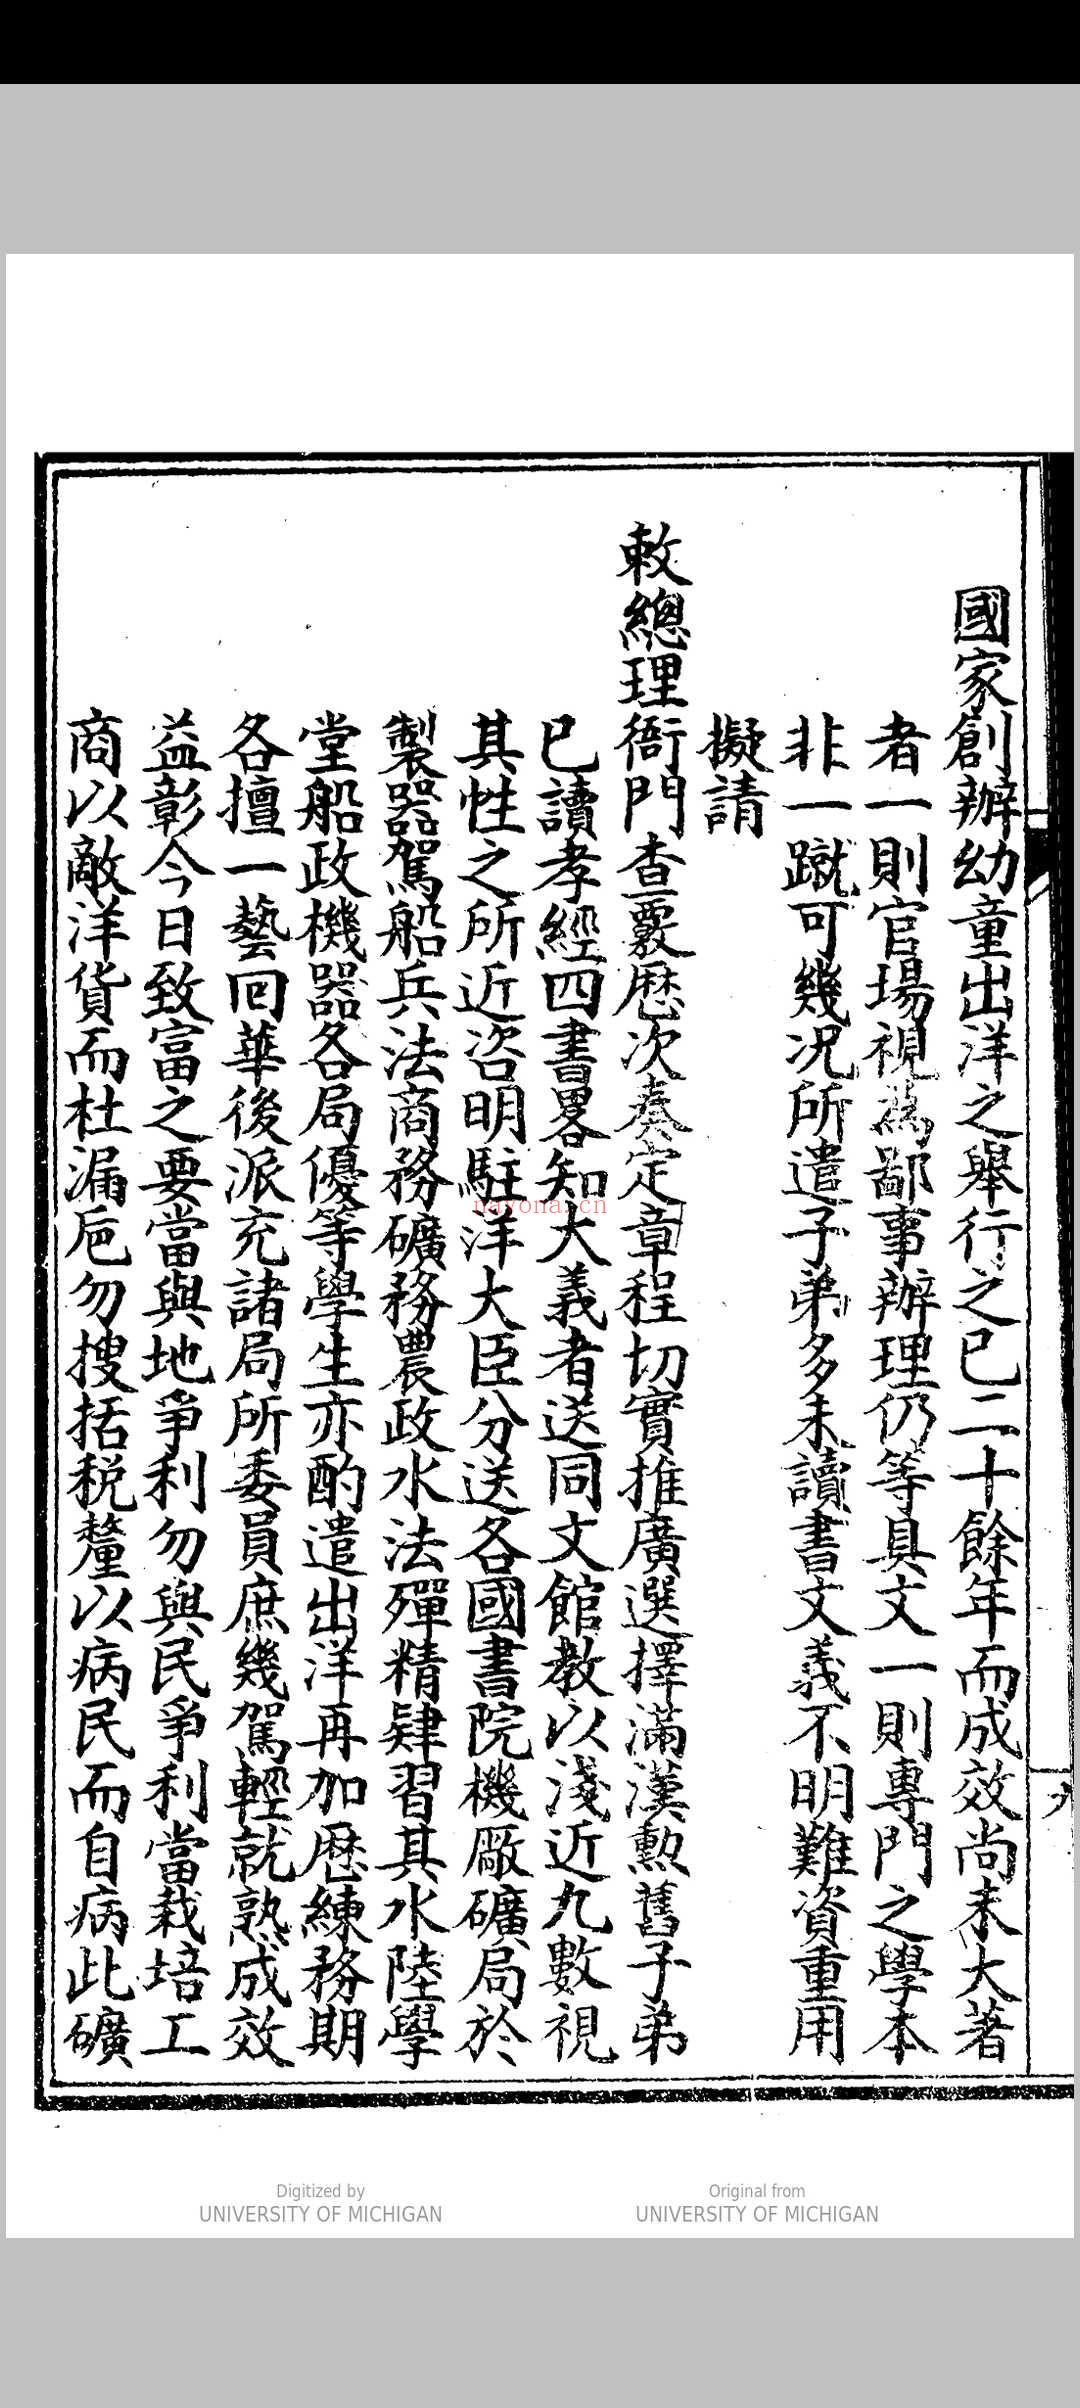 國家創辦幼童出洋之舉行之已二十餘年而成效尚未大著
者一則官場視為鄙事辦理仍等具文一則專門之學本
非一蹴可幾况所遣子弟多未讀書文義不明難資重用
擬請
敕總理衙門查覈歷次奏定章程切實推廣選擇滿漢勳舊子弟
已讀孝經四書畧知大義者送同文館教以淺近九數視
其性之所近咨明駐洋大臣分送各國書院機厰礦局於
製器駕船兵法商務礦務農政水法殫精肄習其水陸學
堂船政機器各局優等學生亦酌遣出洋再加歷練務期
各擅一藝回華後派充諸局所委員庶幾駕輕就熟成效
益彰今日致富之要當與地爭利勿與民爭利當栽培工
商以敵洋貨而杜漏卮勿搜括稅釐以病民而自病此礦
八
nayona.cn
Digitized by
UNIVERSITY OF MICHIGAN
Original from
UNIVERSITY OF MICHIGAN